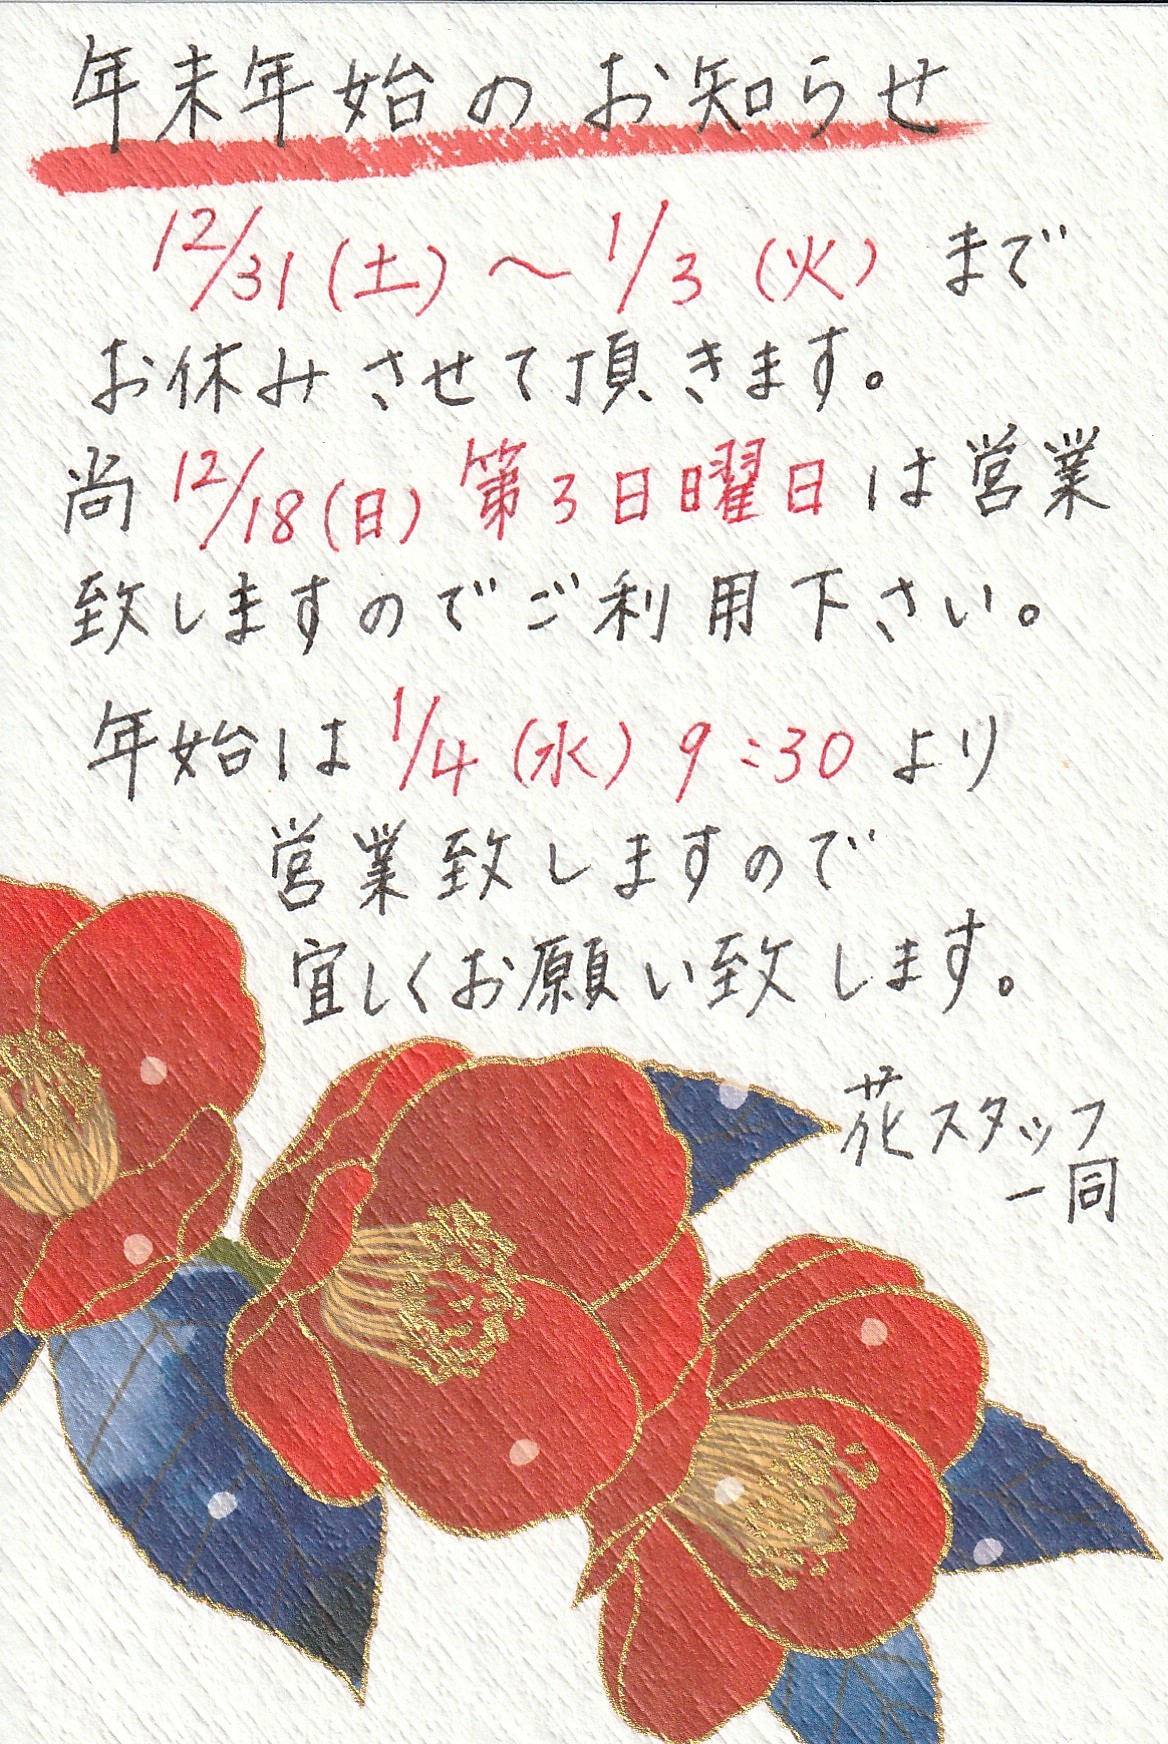 年末年始のお知らせ
12/31(土)～1/3(火)まで
お休みさせて頂きます。
尚12/18(日)第3日曜日は営業
致しますのでご利用下さい。
年始は1/4(水)9:30より
営業致しますので
宜しくお願い致します。
花スタッフ
一同